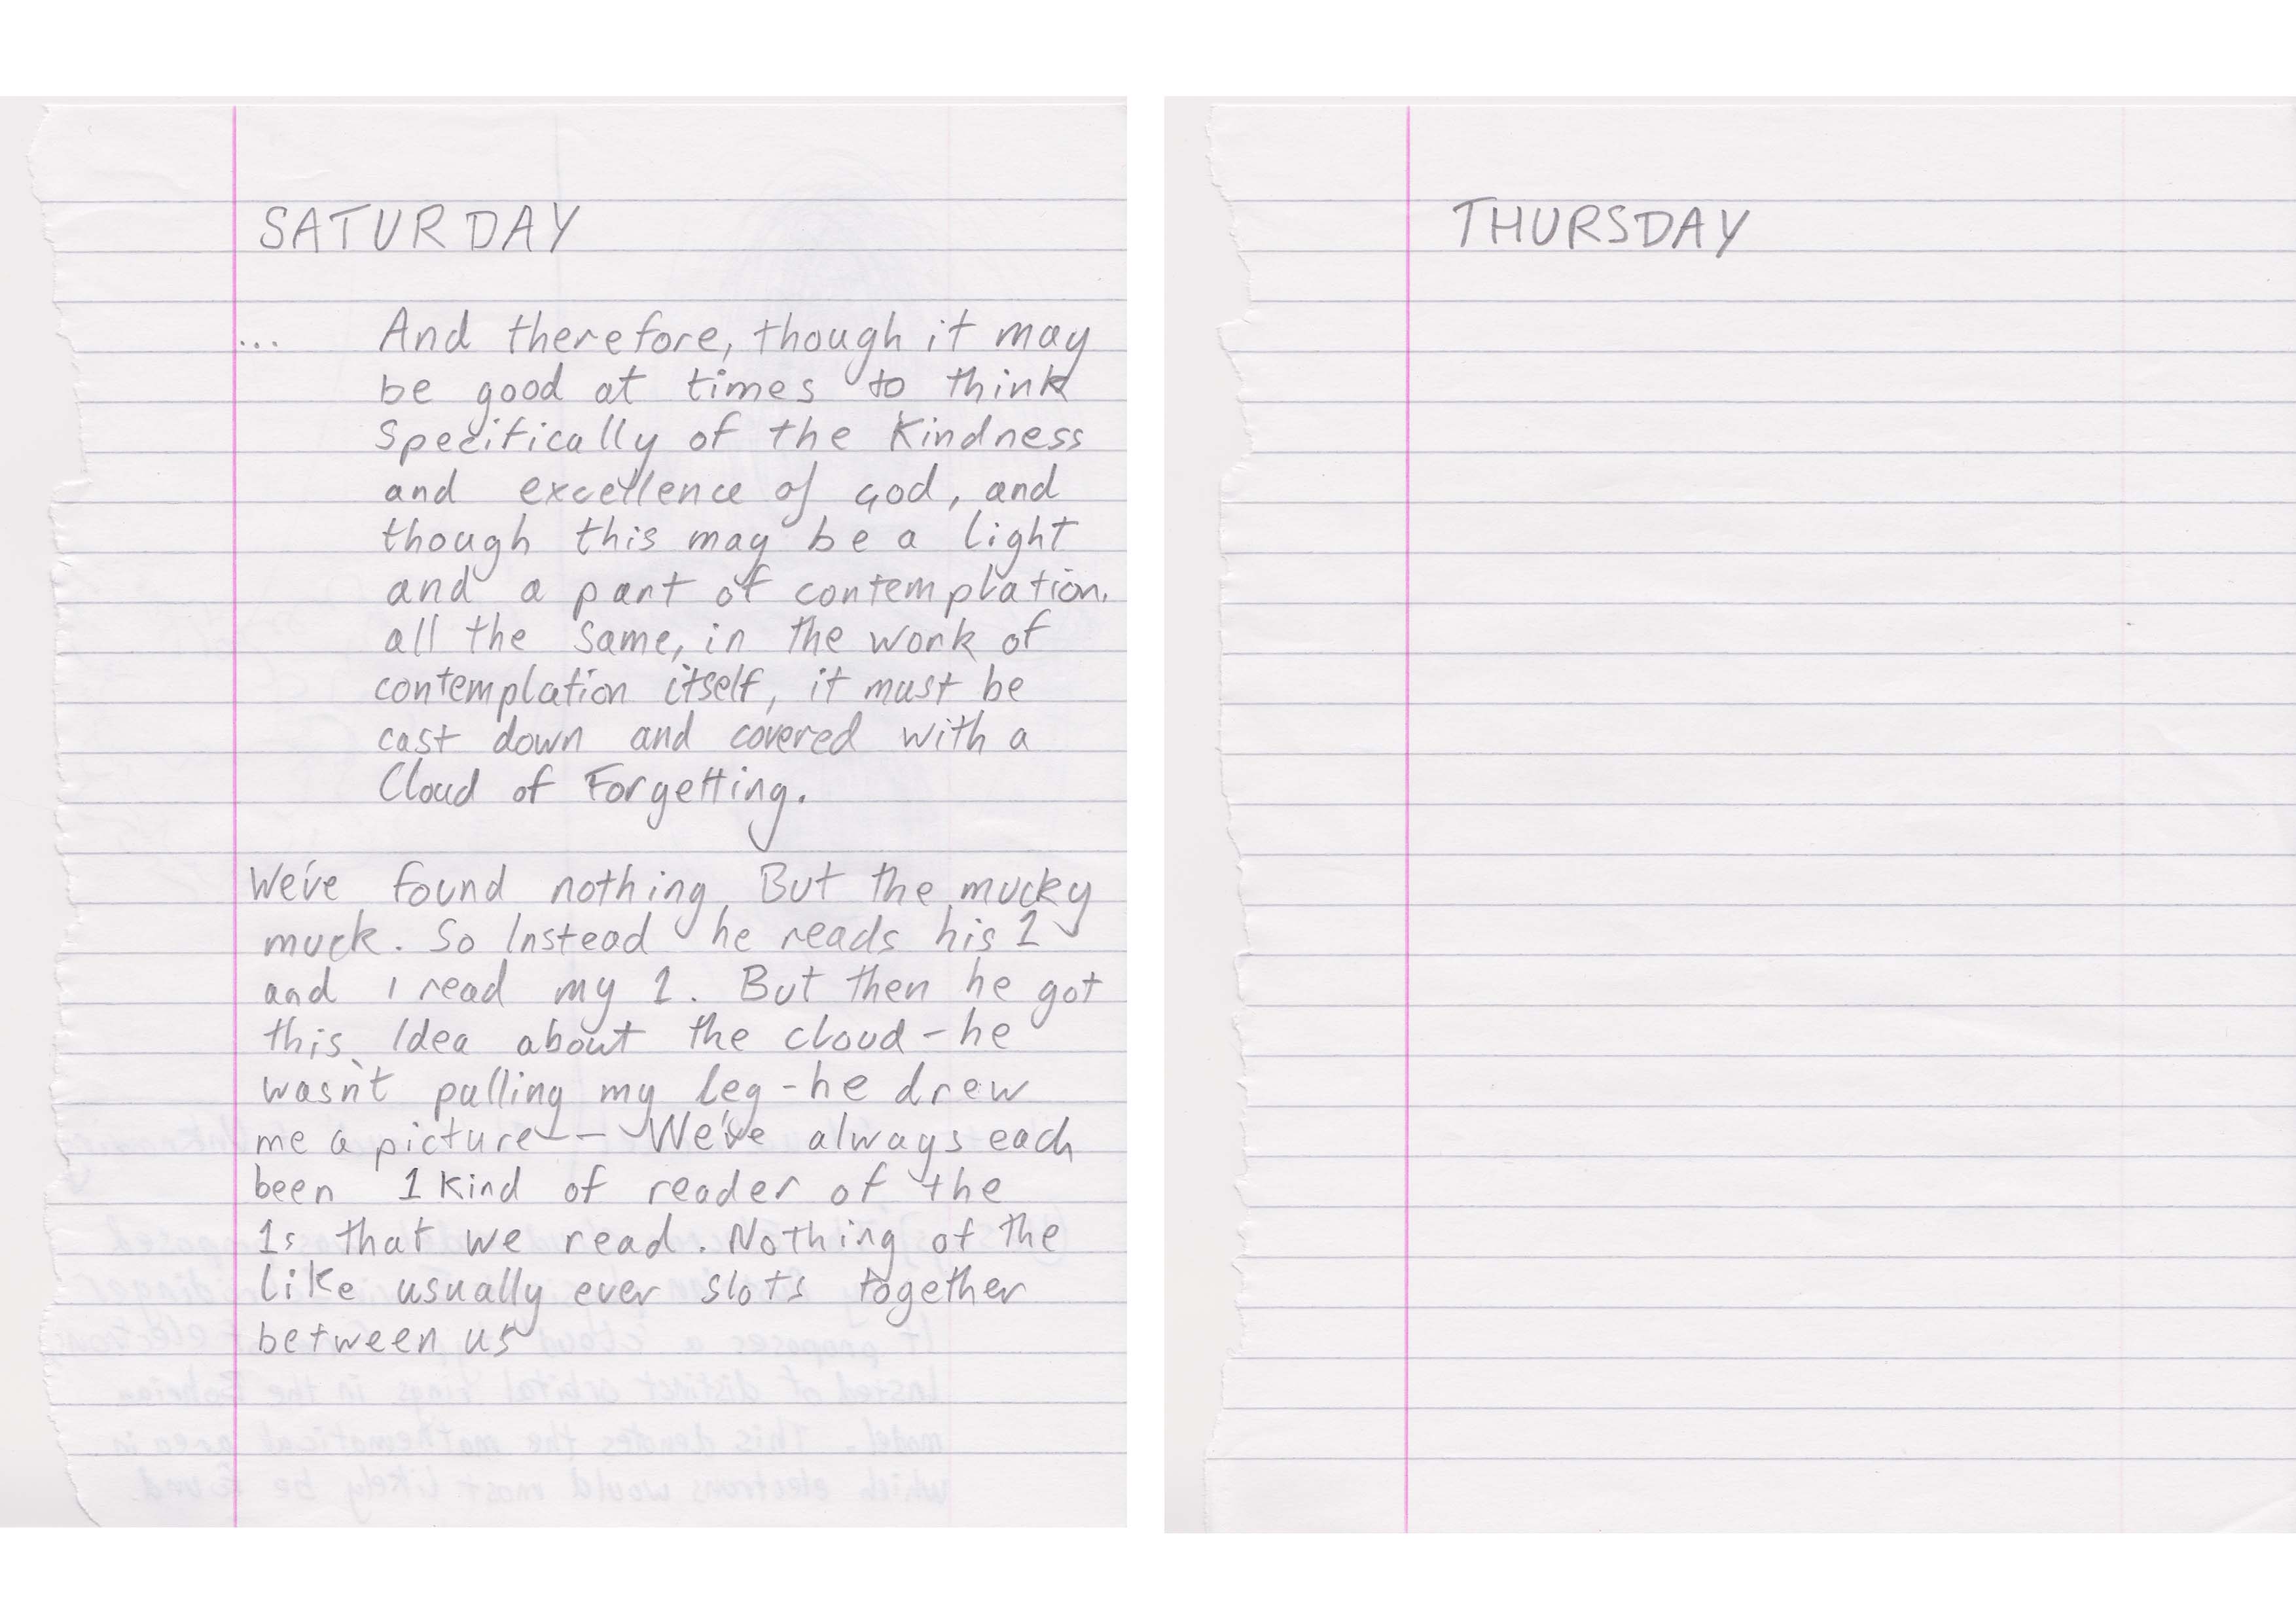 SATURDAY
... And therefore, though it may
be good at times to think
Specifically of the Kindness
and excellence of God, and
though this may be a light
and a part of contemplation.
all the same, in the work of
contemplation itself, it must be
cast down and covered with a
Cloud of Forgetting.
We've found nothing But the mucky
muck. So Instead he reads his 1
and I read my 1. But then he got
this Idea about the cloud - he
wasn't pulling my leg - he drew
me a picture -- We've always each
been 1 kind of reader of the
1s that we read. Nothing of the
like usually ever slots together
between us
THURSDAY